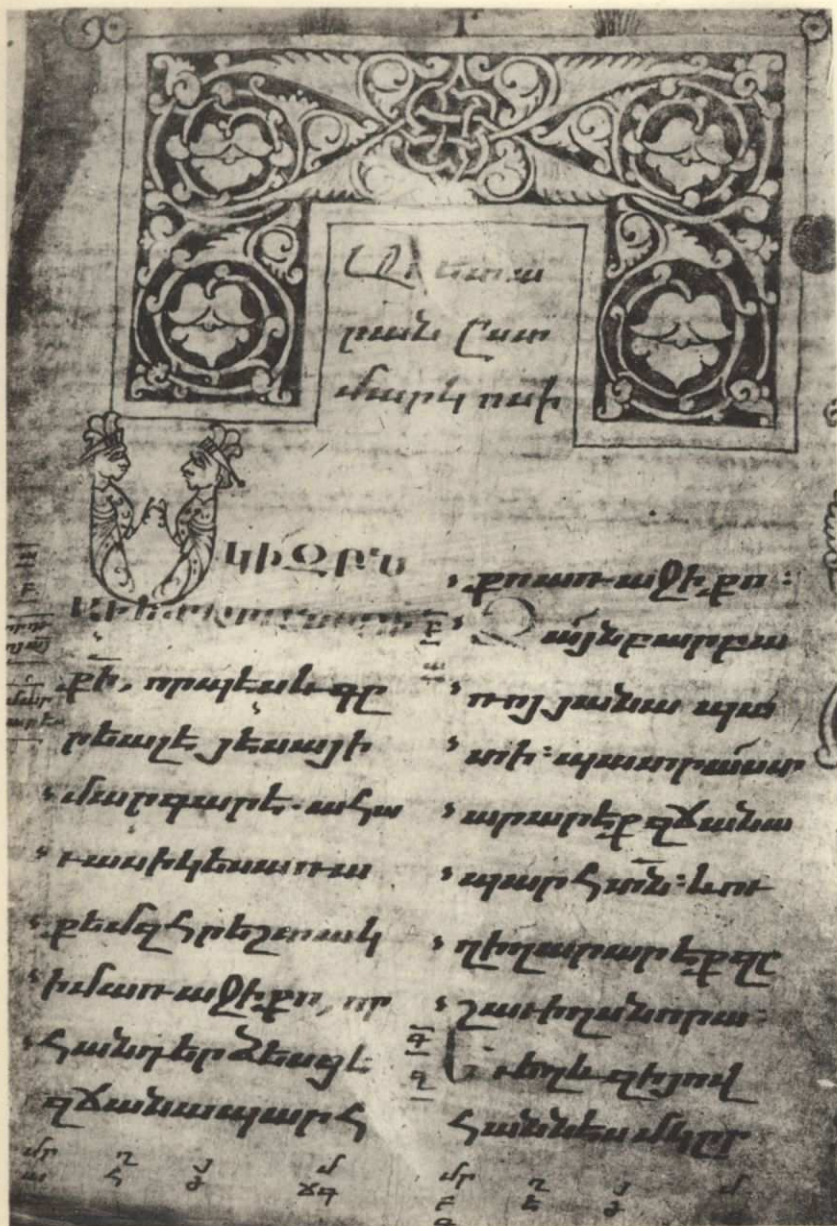 Աւետա
րան Ըստ
մարկոսի
ՍԿԻԶԲՆ
ԱՒԵՏԱՐԱՆԻ
քի, որպէս և գը
րեալ է յեսայի
մարգարէ. ահա
ւասիկ ես առա
քեմ զհրեշտակ
իմ առաջի քո, որ
հանդերձեսցէ
զճանապարհ
քո առաջի քո։
Ձայն բարբա
ռոյ յանապա
տի։ պատրաստ
արարէք զճանա
պարհ տն։ և ու
ղիղ արարէք զը
շաւիղս նորա։
Եւ եղև զի յով
հաննէս մկըր
մր ղ յ մ մր ղ յ